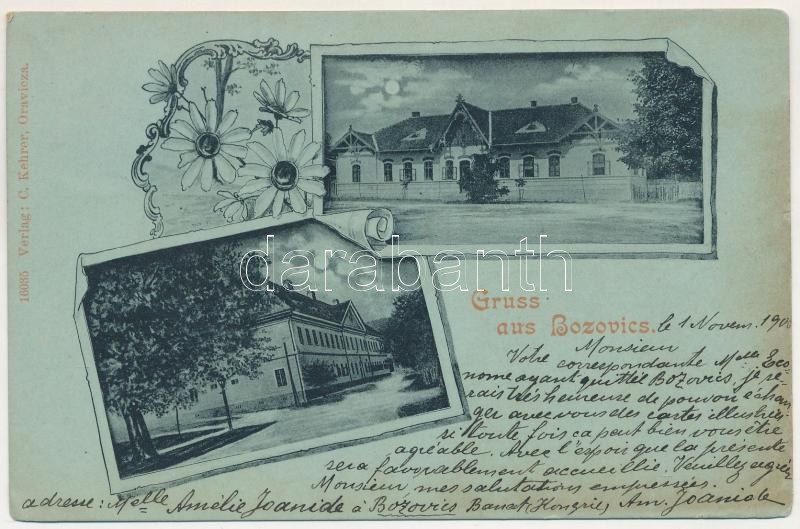 16085 Verlag: C. Kehrer, Oravicza.
darabanth
Gruss
aus Bozovics.
le 1 Novem. 190
Monsieur
Votre correspondante Melle Eco-
nome ayant quitté Bozovics, je se-
rais très heureuse de pouvoir échan-
ger avec vous des cartes illustrées
si toute fois ça peut bien vous être
agréable. Avec l'espoir que la présente
sera favorablement accueillie. Veuillez agréer
Monsieur mes salutations empressées.
adresse: Melle Amélie Joanide à Bozovics Banat, Hongrie, Am. Joanide